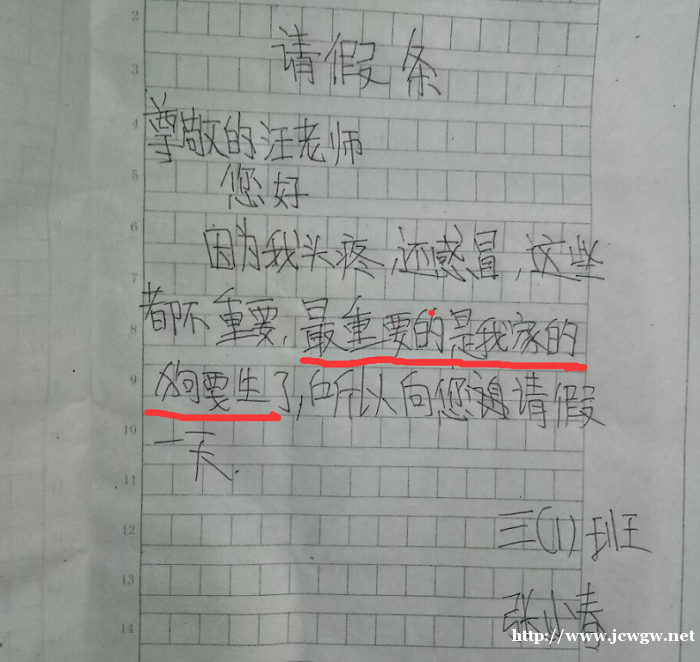 2
3
请假条
4
尊敬的汪老师
5
您好
6
因为我头疼,还感冒,这些
7
8
都不重要,最重要的是我家的
9
狗要生了,所以向您请假
10
一天.
11
12
三(1)班
13
张小春
14
http://www.jcwgw.net